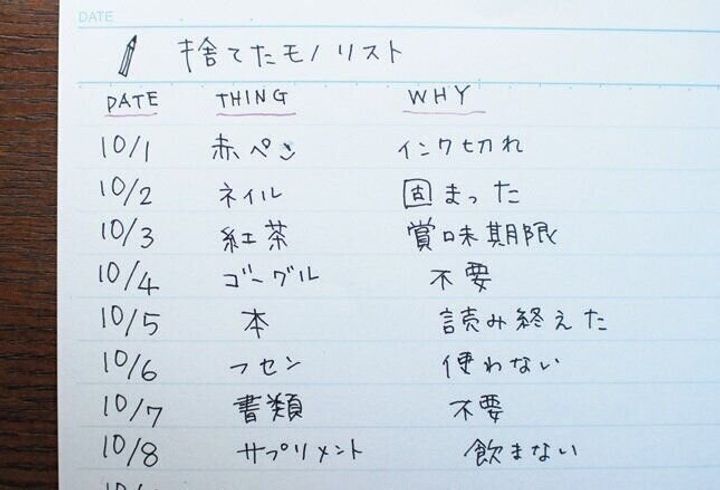 DATE
捨てたモノリスト
DATE THING WHY
10/1 赤ペン インク切れ
10/2 ネイル 固まった
10/3 紅茶 賞味期限
10/4 ゴーグル 不要
10/5 本 読み終えた
10/6 フセン 使わない
10/7 書類 不要
10/8 サプリメント 飲まない